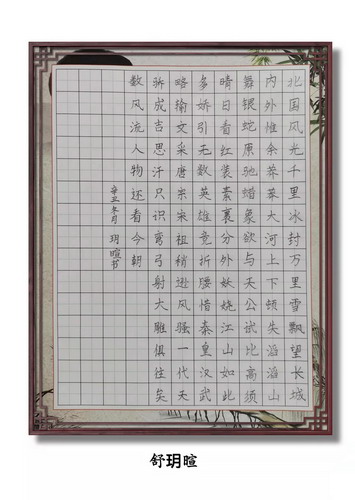 北国风光千里冰封万里雪飘望长城
内外惟余莽莽大河上下顿失滔滔山
舞银蛇原驰蜡象欲与天公试比高须
晴日看红装素裹分外妖娆江山如此
多娇引无数英雄竞折腰惜秦皇汉武
略输文采唐宗宋祖稍逊风骚一代天
骄成吉思汗只识弯弓射大雕俱往矣
数风流人物还看今朝
辛丑冬月 玥暄书
舒玥暄